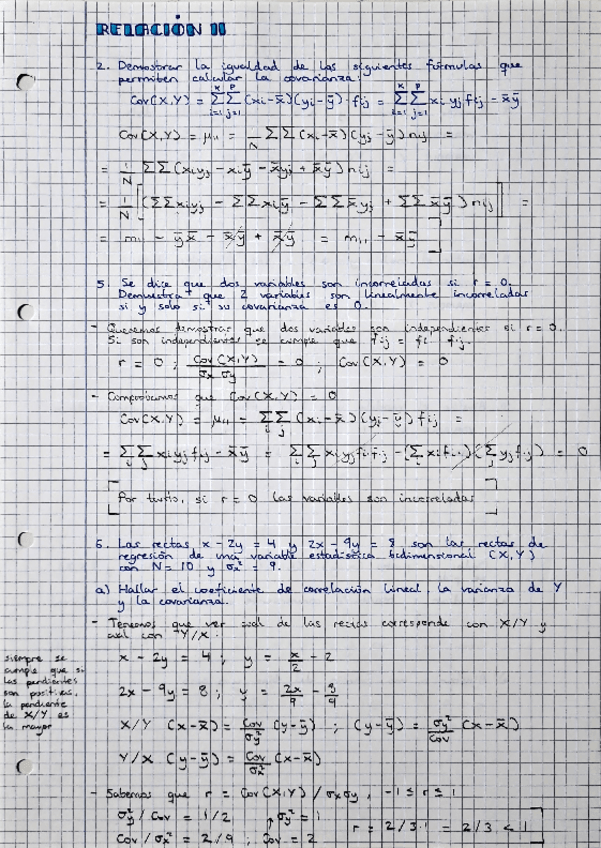 RELACIÓN 11
2. Demostrar la igualdad de las siguientes fórmulas que
permiten calcular la covarianza:
Cov(X,Y) = Σ(i=1..k) Σ(j=1..p) (xi-x̄)(yj-ȳ)·fij = Σ(i=1..k) Σ(j=1..p) xi yj fij - x̄ȳ
Cov(X,Y) = μ11 = 1/N ΣΣ(xi-x̄)(yj-ȳ)nij =
= 1/N ΣΣ(xiyj - xiȳ - x̄yj + x̄ȳ)nij =
= 1/N [(ΣΣxiyj - ΣΣxiȳ - ΣΣx̄yj + ΣΣx̄ȳ)nij] =
= m11 - ȳx̄ - x̄ȳ + x̄ȳ = m11 - x̄ȳ
5. Se dice que dos variables son incorreladas si r = 0.
Demuestra que 2 variables son linealmente incorreladas
si y solo si su covarianza es 0.
- Queremos demostrar que dos variables son independientes si r = 0.
Si son independientes se cumple que fij = fi· f·j.
r = 0 ; Cov(X,Y)/σx σy = 0 ; Cov(X,Y) = 0
- Comprobamos que Cov(X,Y) = 0
Cov(X,Y) = μ11 = ΣiΣj (xi-x̄)(yj-ȳ)fij =
= ΣiΣj xiyjfij - x̄ȳ = ΣiΣj xiyjfi·f·j - (Σi xifi·)(Σj yjf·j) = 0
Por tanto, si r = 0 las variables son incorreladas
6. Las rectas x - 2y = 4 y 2x - 9y = 8 son las rectas de
regresión de una variable estadística bidimensional (X,Y)
con N = 10 y σx² = 9.
a) Hallar el coeficiente de correlación lineal, la varianza de Y
y la covarianza.
- Tenemos que ver cual de las rectas corresponde con X/Y y
cual con Y/X.
siempre se
cumple que si
las pendientes
son positivas,
la pendiente
de X/Y es
la mayor
x - 2y = 4 ; y = x/2 - 2
2x - 9y = 8 ; y = 2x/9 - 8/9
X/Y (x-x̄) = Cov/σy² (y-ȳ) ; (y-ȳ) = σy²/Cov (x-x̄)
Y/X (y-ȳ) = Cov/σx² (x-x̄)
- Sabemos que r = Cov(X,Y)/σxσy, -1 ≤ r ≤ 1
σy²/Cov = 1/2 ; σy² = 1
Cov/σx² = 2/9 ; Cov = 2
r = 2/3·1 = 2/3 < 1